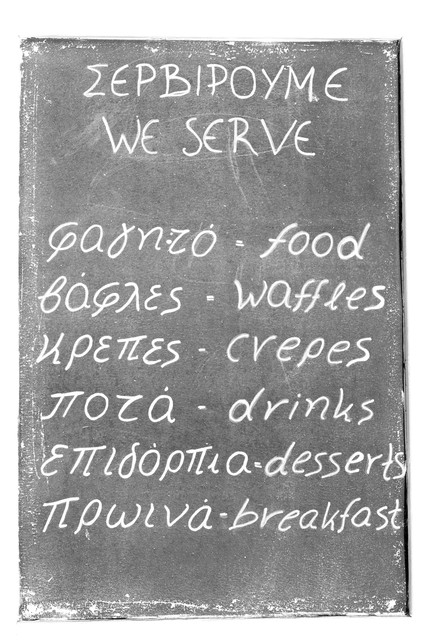 ΣΕΡΒΙΡΟΥΜΕ
WE SERVE
φαγητό - food
βάφλες - waffles
κρέπες - crepes
ποτά - drinks
επιδόρπια - desserts
πρωινά - breakfast